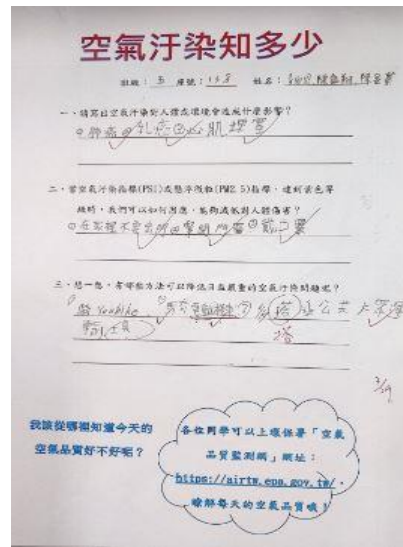 空氣汙染知多少
班級：五 座號： 姓名：
一、請寫出空氣汙染對人體或環境會造成什麼影響？
①肺病②乳癌③心肌梗塞
二、當空氣汙染指標(PSI)或懸浮微粒(PM2.5)指標，達到紫色等
級時，我們可以如何因應，能夠減低對人體傷害？
①在家裡不要出門②緊閉門窗③戴口罩
三、想一想，有哪些方法可以降低日益嚴重的空氣汙染問題呢？
騎Youbike
搭
我該從哪裡知道今天的
空氣品質好不好呢？
各位同學可以上環保署「空氣
品質監測網」網址：
https://airtw.epa.gov.tw/，
瞭解每天的空氣品質哦！